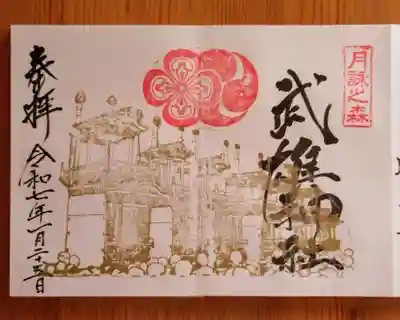 月詠之森
武雄神社
奉拝
令和七年一月二十五日